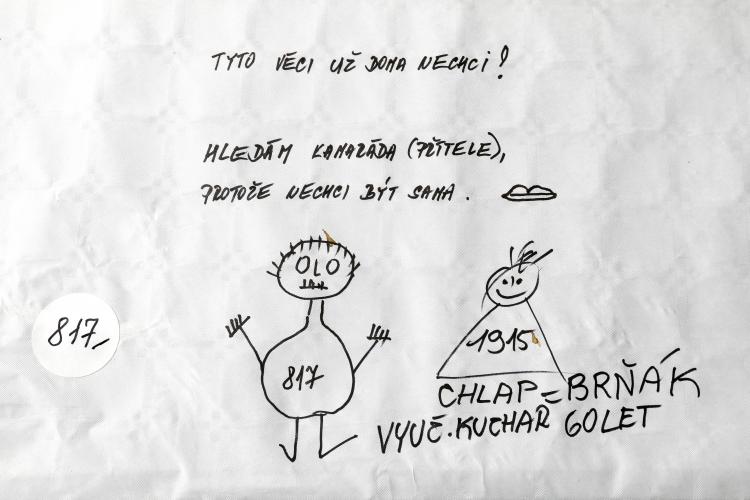 TYTO VĚCI UŽ DOMA NECHCI!
HLEDÁM KAMARÁDA (PŘÍTELE),
PROTOŽE NECHCI BÝT SAMA.
817,
817
1915
CHLAP = BRŇÁK
VYUČ. KUCHAŘ 60 LET